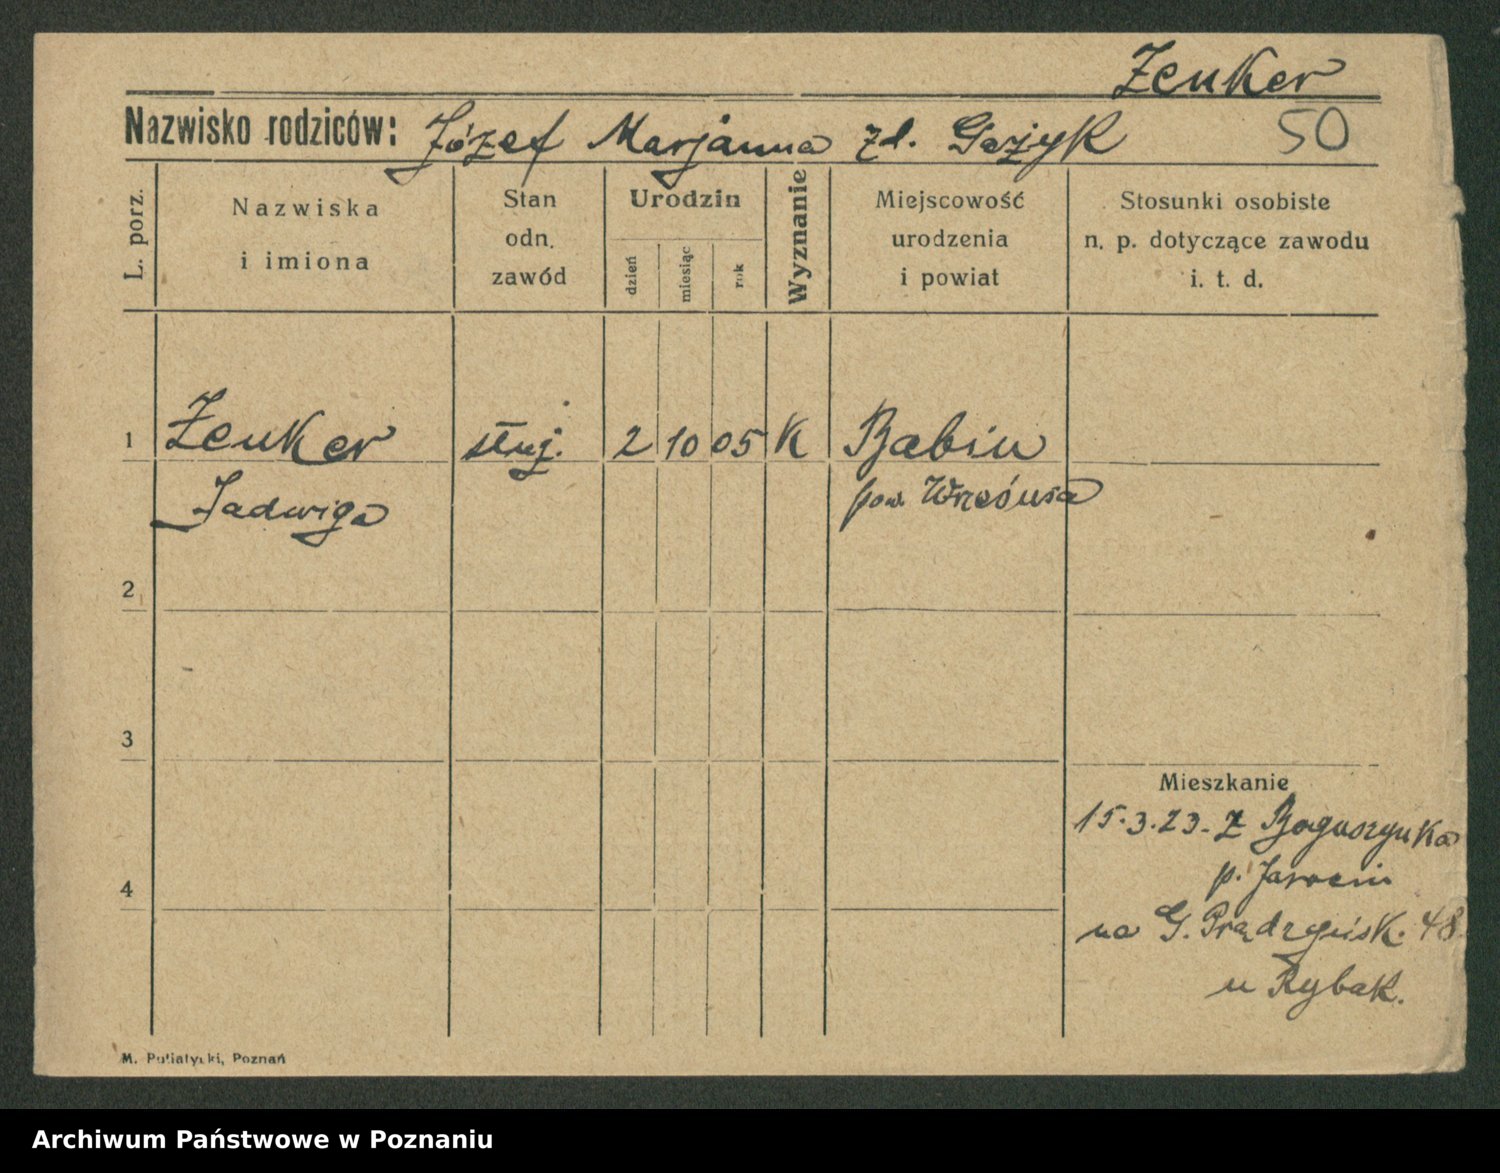 Zenker
Nazwisko rodziców: Józef Marjanna zd. Gażyk 50
L. porz.
Nazwiska
i imiona
Stan
odn.
zawód
Urodzin
dzień
miesiąc
rok
Wyznanie
Miejscowość
urodzenia
i powiat
Stosunki osobiste
n. p. dotyczące zawodu
i. t. d.
1 Zenker służ. 2 10 05 K Babin
Jadwiga pow. Wrześnsa
2
3
Mieszkanie
15.3.23. z Boguszynka
4 p. Jarocin
na G. Prądzyńsk. 48
u Rybak.
M. Putiatycki, Poznań
Archiwum Państwowe w Poznaniu